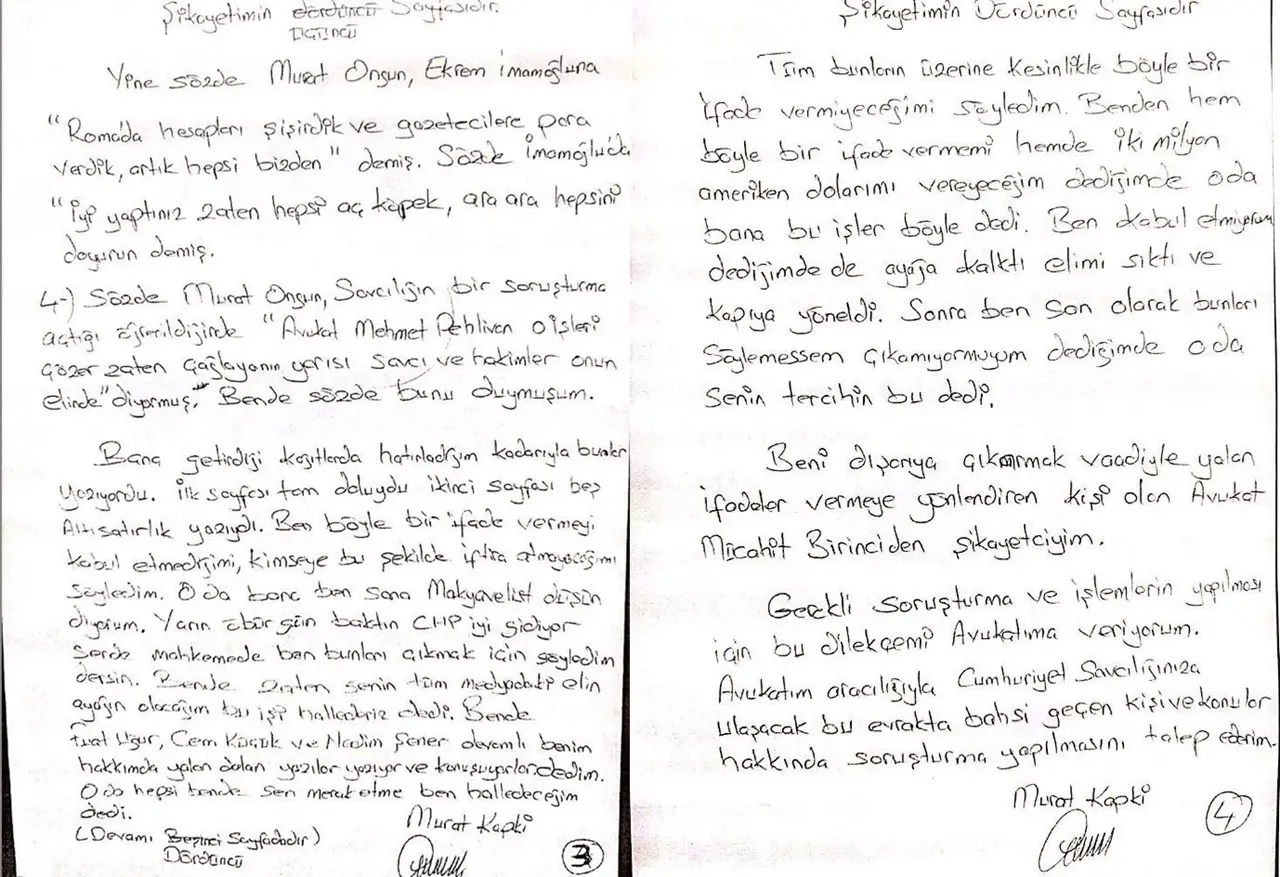 Şikayetimin dördüncü Sayfasıdır.
Üçüncü
Yine sözde Murat Ongun, Ekrem İmamoğluna
"Roma'da hesapları şişirdik ve gazetecilere para
verdik, artık hepsi bizden" demiş. Sözde İmamoğlu'da
"iyi yaptınız zaten hepsi aç köpek, ara ara hepsini
doyurun demiş.
4-) Sözde Murat Ongun, Savcılığın bir soruşturma
açtığı öğrenildiğinde "Avukat Mehmet Pehlivan o işleri
çözer zaten Çağlayanın yarısı savcı ve hakimler onun
elinde" diyormuş. Bende sözde bunu duymuşum.
Bana getirdiği kağıtlarda hatırladığım kadarıyla bunlar
yazıyordu. İlk sayfası tam doluydu ikinci sayfası beş
Altı satırlık yazıydı. Ben böyle bir ifade vermeyi
kabul etmediğimi, kimseye bu şekilde iftira atmayacağımı
söyledim. O da bana ben sana Makyavelist düşün
diyorum. Yarın öbür gün baktın CHP iyi gidiyor
sende mahkemede ben bunları çıkmak için söyledim
dersin. Bende zaten senin tüm medyadaki elin
ayağın olacağım bu işi hallederiz dedi. Bende
Fuat Uğur, Cem Küçük ve Nedim Şener devamlı benim
hakkımda yalan dolan yazılar yazıyor ve konuşuyorlar dedim.
O da hepsi bende sen merak etme ben halledeceğim
dedi.
(Devamı Beşinci Sayfadadır)
Dördüncü
Murat Kapki
3
Şikayetimin Dördüncü Sayfasıdır
Tüm bunların üzerine kesinlikle böyle bir
ifade vermiyeceğimi söyledim. Benden hem
böyle bir ifade vermemi hemde iki milyon
ameriken dolarımı vereyeceğim dediğimde oda
bana bu işler böyle dedi. Ben kabul etmiyorum
dediğimde de ayağa kalktı elimi sıktı ve
kapıya yöneldi. Sonra ben son olarak bunları
Söylemessem çıkamıyormuyum dediğimde oda
Senin tercihin bu dedi.
Beni dışarıya çıkarmak vaadiyle yalan
ifadeler vermeye yönlendiren kişi olan Avukat
Mücahit Birinciden şikayetciyim.
Gerekli soruşturma ve işlemlerin yapılması
için bu dilekçemi Avukatıma veriyorum.
Avukatım aracılığıyla Cumhuriyet Savcılığınıza
ulaşacak bu evrakta bahsi geçen kişi ve konular
hakkında soruşturma yapılmasını talep ederim.
Murat Kapki
4